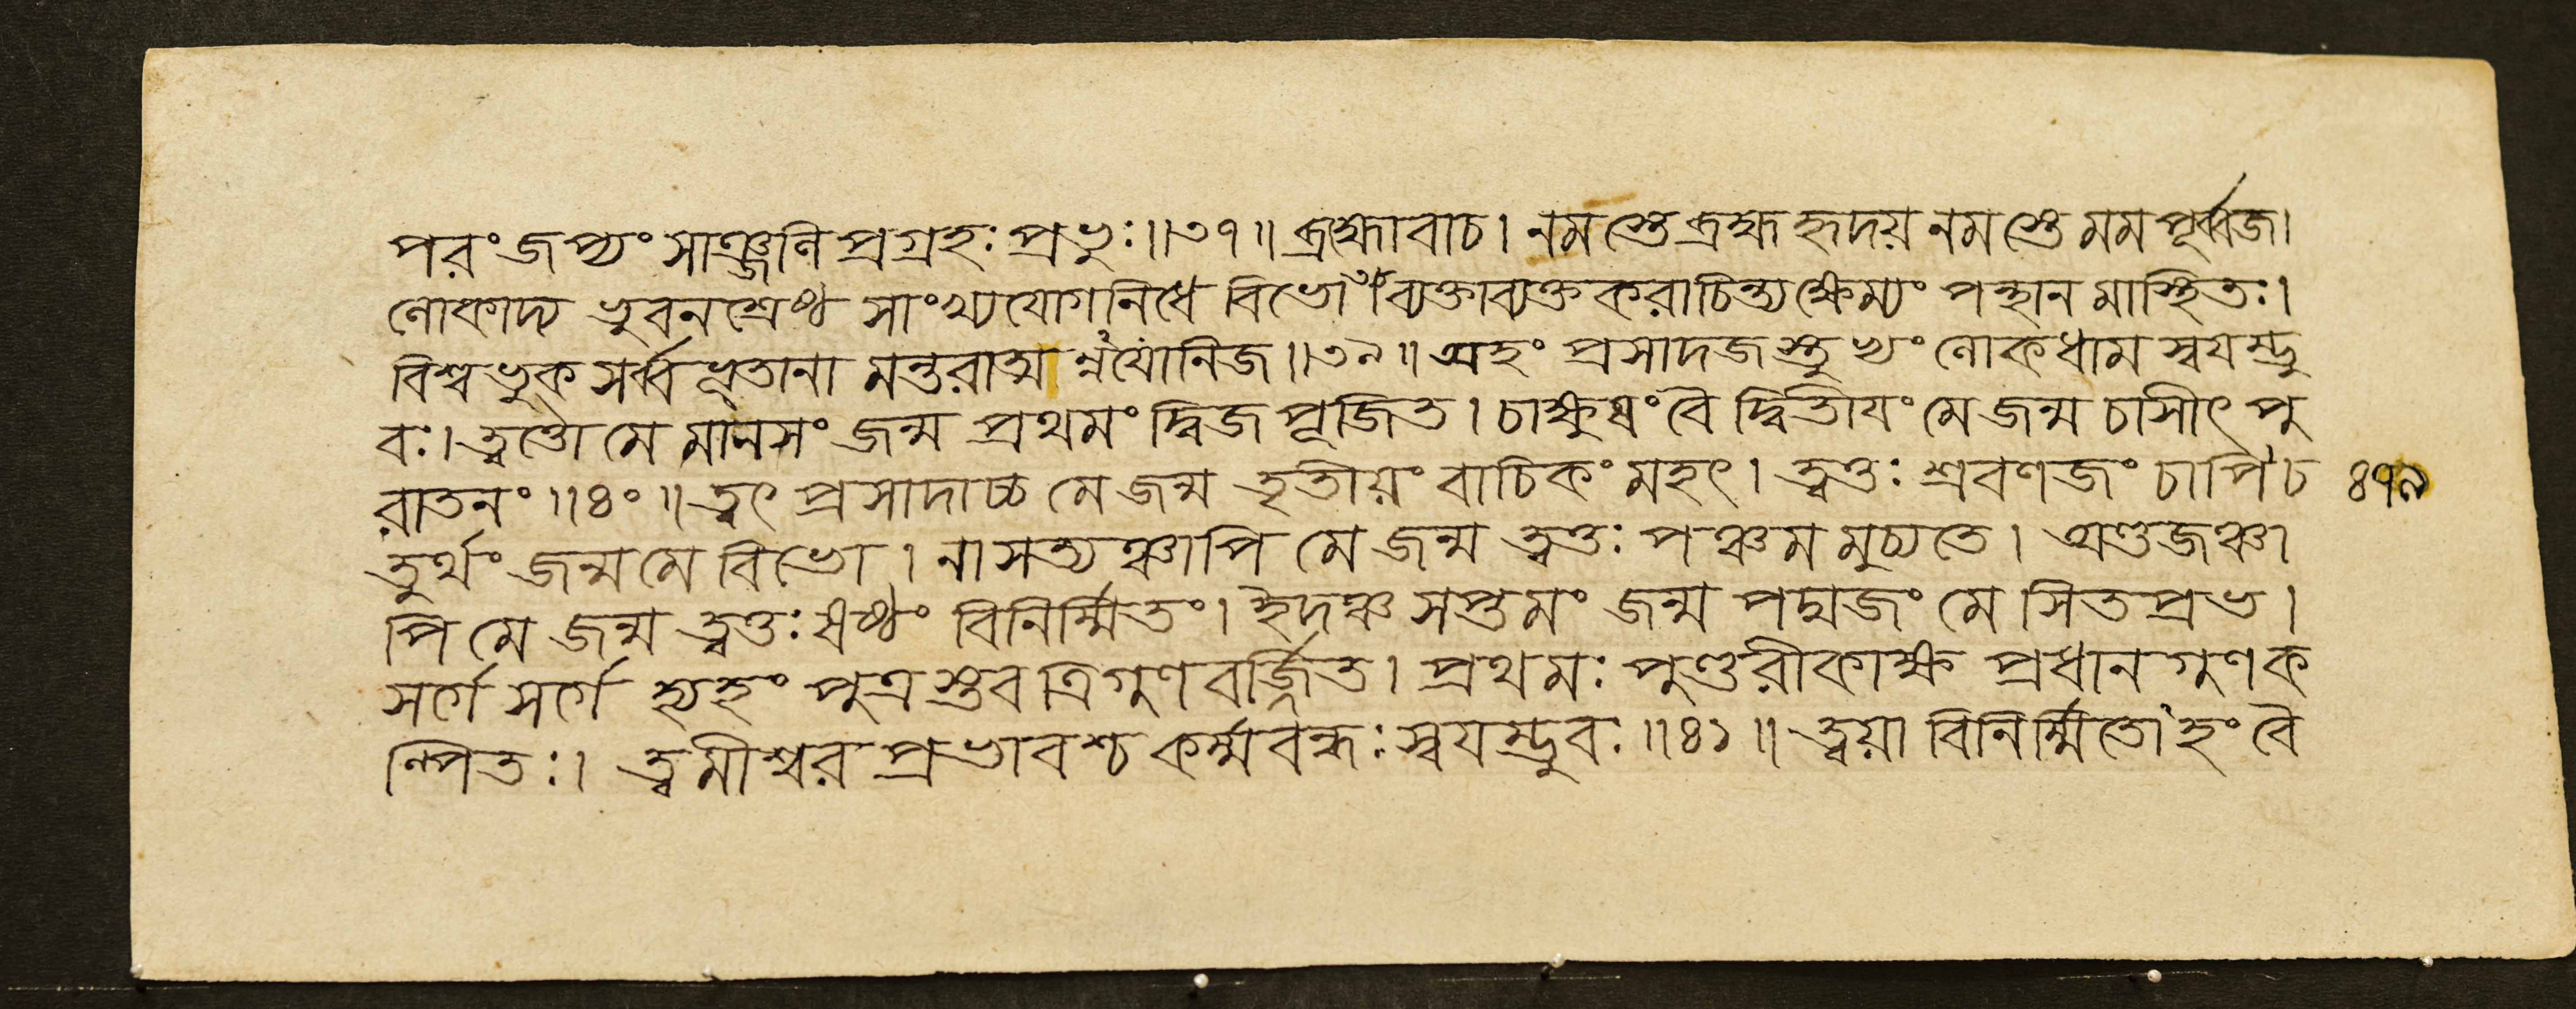 পরং জপ্যং সাঞ্জনি প্রগ্রহঃ প্রভুঃ॥৩৭॥ ব্রহ্মোবাচ। নমস্তে ব্রহ্ম হৃদয় নমস্তে মম পূর্ব্বজ।
লোকাদ্য ভুবনশ্রেষ্ঠ সাংখ্যযোগনিধে বিভো ব্যক্তাব্যক্ত করাচিন্ত্য ক্ষেম্যং পন্থান মাস্থিতঃ।
বিশ্বভুক সর্ব্বভূতানা মন্তরাত্ম ন্নযোনিজ॥৩৯॥ অহং প্রসাদজ স্তুখ্যং লোকধাম স্বযম্ভু
বঃ। ত্বত্তো মে মানসং জন্ম প্রথমং দ্বিজ পূজিত। চাক্ষুষং বৈ দ্বিতীযং মে জন্ম চাসীৎ পু
রাতনং॥৪০॥ ত্বৎ প্রসাদাচ্চ মে জন্ম তৃতীয়ং বাচিকং মহৎ। ত্বত্তঃ শ্রবণজং চাপি চ ৪৭৯
তুর্থং জন্ম মে বিভো। নাসত্যঞ্চাপি মে জন্ম ত্বত্তঃ পঞ্চম মুচ্যতে। অণ্ডজঞ্চা
পি মে জন্ম ত্বত্তঃ ষষ্ঠং বিনির্ম্মিতং। ইদঞ্চ সপ্তমং জন্ম পদ্মজং মে সিত প্রভ।
সর্গে সর্গে হ্যহং পুত্র স্তব ত্রিগুণ বর্জ্জিত। প্রথমঃ পুণ্ডরীকাক্ষ প্রধান গুণ ক
ল্পিতঃ। ত্বমীশ্বর প্রভাবশ্চ কর্ম্মবন্ধঃ স্বযম্ভুবঃ॥৪১॥ ত্বয়া বিনির্ম্মিতোহং বৈ